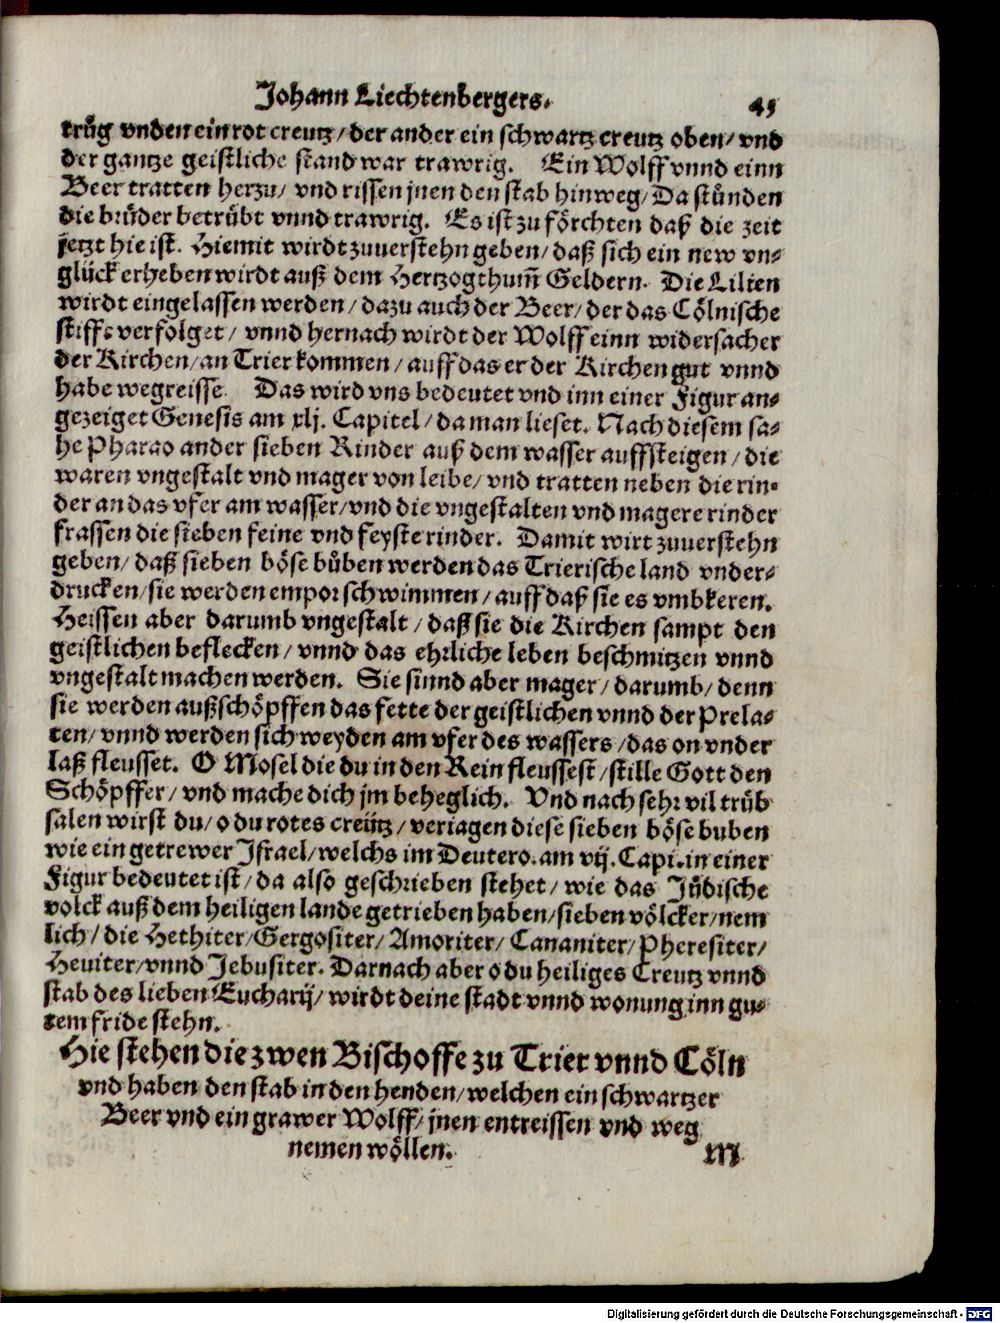 Johann Liechtenbergers. 45
trůg vnden ein rot creutz / der ander ein schwartz creutz oben / vnd
der gantze geistliche stand war trawrig. Ein Wolff vnnd einn
Beer tratten herzu / vnd rissen jnen den stab hinweg / Da stůnden
die brůder betrůbt vnnd trawrig. Es ist zu förchten daß die zeit
jetzt hie ist. Hiemit wirdt zuuerstehn geben / daß sich ein new vn-
glück erheben wirdt auß dem Hertzogthum̃ Geldern. Die Lilien
wirdt eingelassen werden / dazu auch der Beer / der das Cölnische
stifft verfolget / vnnd hernach wirdt der Wolff einn widersacher
der Kirchen / an Trier kommen / auff das er der Kirchen gut vnnd
habe wegreisse. Das wird vns bedeutet vnd inn einer Figur an-
gezeiget Genesis am xlj. Capitel / da man lieset. Nach diesem sa-
he Pharao ander sieben Rinder auß dem wasser auffsteigen / die
waren vngestalt vnd mager von leibe / vnd tratten neben die rin-
der an das vfer am wasser / vnd die vngestalten vnd magere rinder
frassen die sieben feine vnd feyste rinder. Damit wirt zuuerstehn
geben / daß sieben böse bůben werden das Trierische land vnder-
drucken / sie werden empor schwimmen / auff daß sie es vmbkeren.
Heissen aber darumb vngestalt / daß sie die Kirchen sampt den
geistlichen beflecken / vnnd das ehrliche leben beschmitzen vnnd
vngestalt machen werden. Sie sinnd aber mager / darumb / denn
sie werden außschöpffen das fette der geistlichen vnnd der Prela-
ten / vnnd werden sich weyden am vfer des wassers / das on vnder
laß fleusset. O Mosel die du in den Rein fleussest / stille Gott den
Schöpffer / vnd mache dich jm beheglich. Vnd nach sehr vil trůb
salen wirst du / o du rotes creütz / veriagen diese sieben böse buben
wie ein getrewer Israel / welchs im Deutero. am vij. Capi. in einer
Figur bedeutet ist / da also geschrieben stehet / wie das Jůdische
volck auß dem heiligen lande getrieben haben / sieben völcker / nem
lich / die Hethiter / Gergositer / Amoriter / Cananiter / Pheresiter /
Heuiter / vnnd Jebusiter. Darnach aber o du heiliges Creutz vnnd
stab des lieben Eucharij / wirdt deine stadt vnnd wonung inn gu-
tem fride stehn.
Hie stehen die zwen Bischoffe zu Trier vnnd Cöln
vnd haben den stab in den henden / welchen ein schwartzer
Beer vnd ein grawer Wolff / jnen entreissen vnd weg
nemen wöllen. M
Digitalisierung gefördert durch die Deutsche Forschungsgemeinschaft - DFG